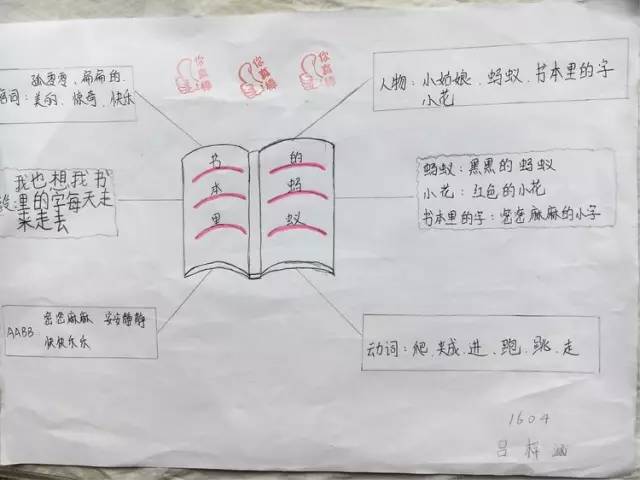 你真棒 你真棒 你真棒
孤零零、扁扁的、
词：美丽、惊奇、快乐
人物：小姑娘、蚂蚁、书本里的字
小花
书本里
的蚂蚁
我也想我书
里的字每天走
来走去
蚂蚁：黑黑的蚂蚁
小花：红色的小花
书本里的字：密密麻麻的小字
AABB：密密麻麻 安安静静
快快乐乐
动词：爬、夹、进、跑、跳、走
1604
吕梓涵